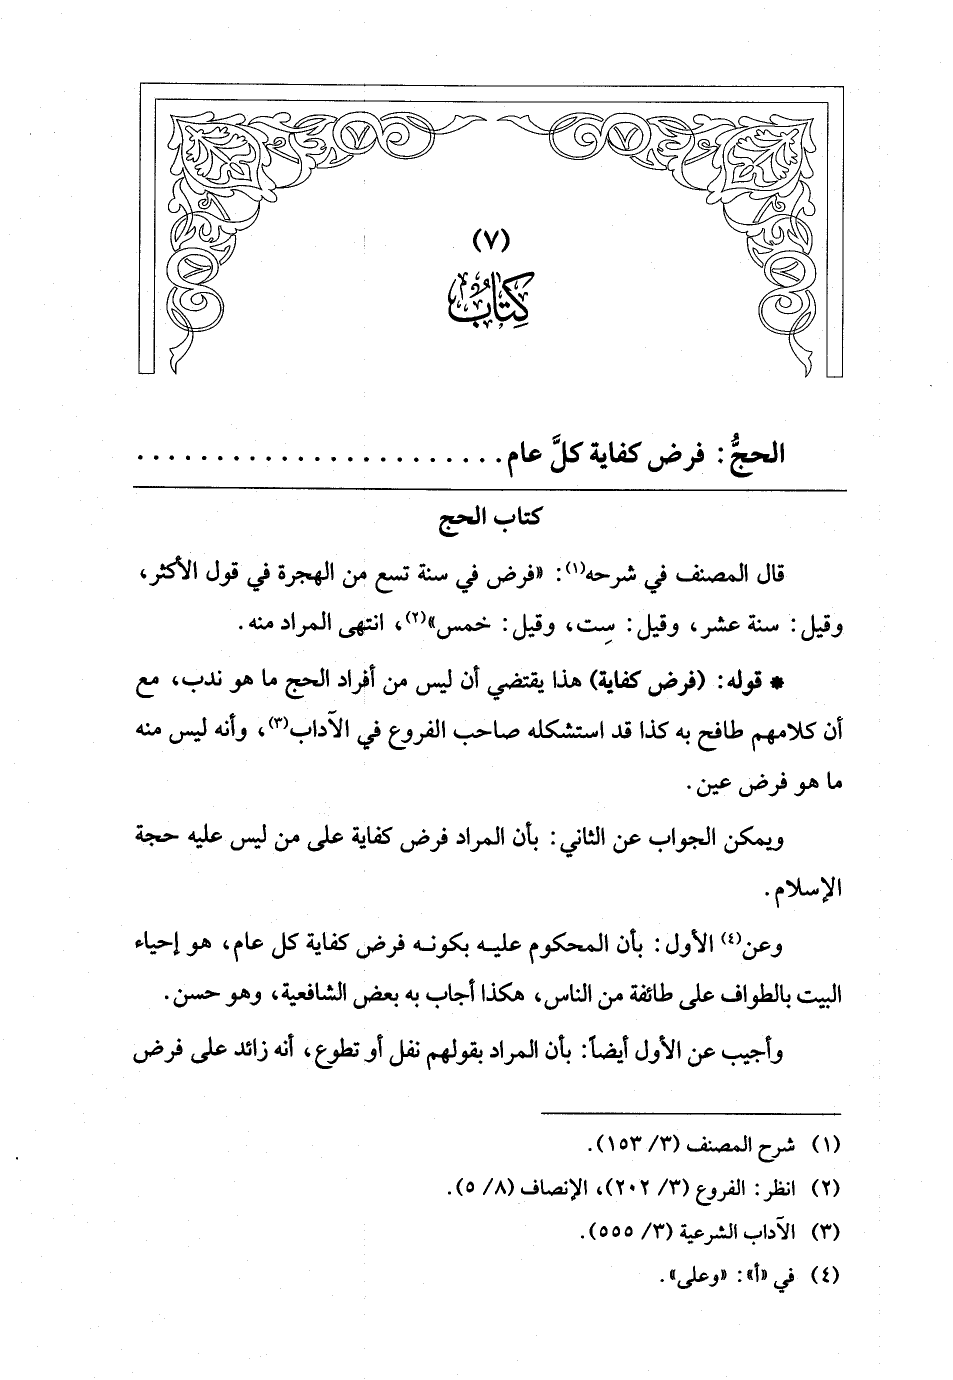 (٧)
كِتَابُ
الحجُّ: فرض كفاية كلَّ عام. . . . . . . . . . . . . . . . . . . . . . .
كتاب الحج
قال المصنف في شرحه(١): «فرض في سنة تسع من الهجرة في قول الأكثر،
وقيل: سنة عشر، وقيل: سِت، وقيل: خمس»(٢)، انتهى المراد منه.
* قوله: (فرض كفاية) هذا يقتضي أن ليس من أفراد الحج ما هو ندب، مع
أن كلامهم طافح به كذا قد استشكله صاحب الفروع في الآداب(٣)، وأنه ليس منه
ما هو فرض عين.
ويمكن الجواب عن الثاني: بأن المراد فرض كفاية على من ليس عليه حجة
الإسلام.
وعن(٤) الأول: بأن المحكوم عليه بكونه فرض كفاية كل عام، هو إحياء
البيت بالطواف على طائفة من الناس، هكذا أجاب به بعض الشافعية، وهو حسن.
وأجيب عن الأول أيضاً: بأن المراد بقولهم نفل أو تطوع، أنه زائد على فرض
(١) شرح المصنف (٣/ ١٥٣).
(٢) انظر: الفروع (٣/ ٢٠٢)، الإنصاف (٨/ ٥).
(٣) الآداب الشرعية (٣/ ٥٥٥).
(٤) في «أ»: «وعلى».